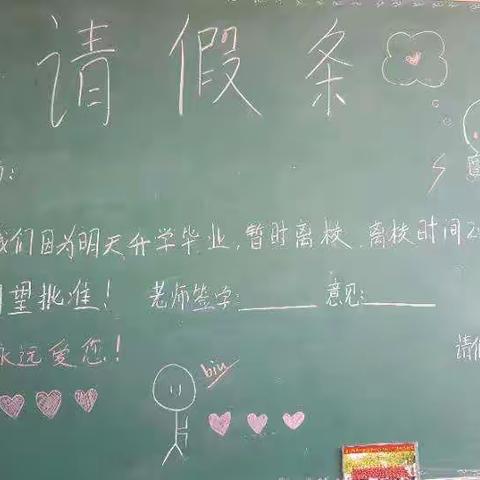 请假条
我们因为明天升学毕业,暂时离校,离校时间2
望批准! 老师签字:______ 意见:______
永远爱您! 请
biu